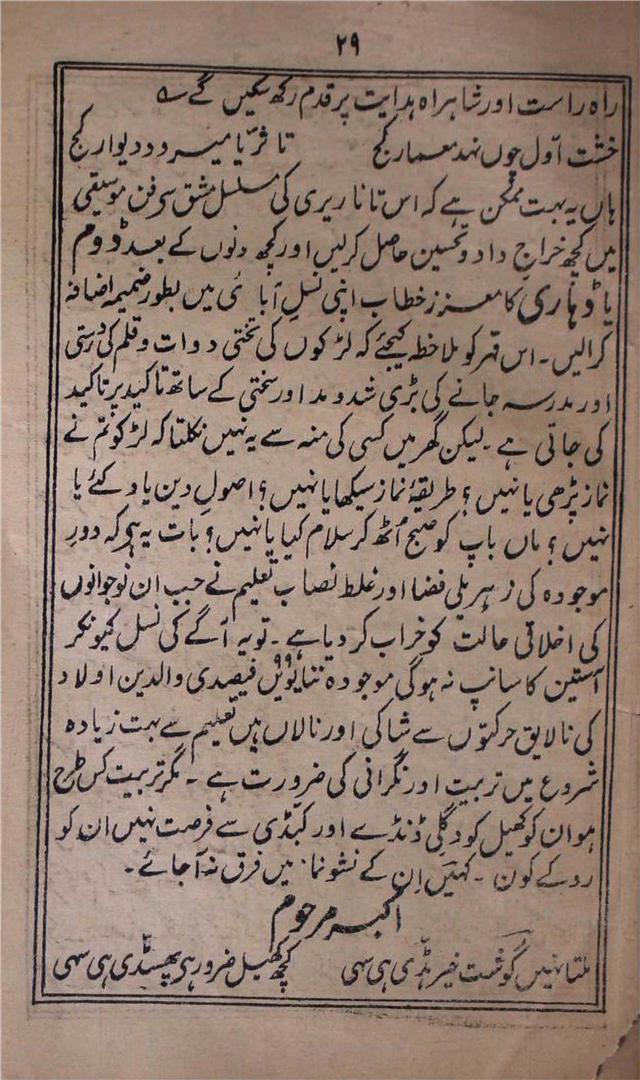 ۲۹
راہ راست اور شاہراہ ہدایت پر قدم رکھ سکیں گے ؎
خشت اوّل چوں نہد معمار کج تا ثریّا میرود دیوار کج
ہاں یہ بہت ممکن ہے کہ اس تاناریری کی مسلسل مشق سے فن موسیقی
میں کچھ خراج داد و تحسین حاصل کرلیں اور کچھ دنوں کے بعد ڈوم
یا ڈہاری کا معزز خطاب اپنی نسل آبائی میں بطور ضمیمہ اضافہ
کرالیں۔ اس قہر کو ملاحظہ کیجئے کہ لڑکوں کی تختی دوات و قلم کی درستی
اور مدرسہ جانے کی بڑی شدومد اور سختی کے ساتھ تاکید پر تاکید
کی جاتی ہے۔ لیکن گھر میں کسی کی منہ سے یہ نہیں نکلتا کہ لڑکو تم نے
نماز پڑھی یا نہیں؟ طریقۂ نماز سیکھا یا نہیں؟ اصول دین یاد کئے یا
نہیں؟ ماں باپ کو صبح اُٹھ کر سلام کیا یا نہیں؟ بات یہ ہے کہ دورِ
موجودہ کی زہریلی فضا اور غلط نصاب تعلیم نے جب ان نوجوانوں
کی اخلاقی حالت کو خراب کردیا ہے۔ تو یہ آگے کی نسل کیونکر
آستین کا سانپ نہ ہوگی موجودہ ننانویں ۹۹ فیصدی والدین اولاد
کی نالایق حرکتوں سے شاکی اور نالاں ہیں تعلیم سے بہت زیادہ
شروع میں تربیت اور نگرانی کی ضرورت ہے۔ مگر تربیت کس طرح
ہو ان کو کھیل کود گلی ڈنڈے اور کبڈی سے فرصت نہیں ان کو
روکے کون۔ کہیں اِن کے نشونما میں فرق نہ آجائے۔
اکبر مرحوم
ملتا نہیں گوشت خیر ہڈّی ہی سہی کچھ کھیل ضرور ہے پھسڈّی ہی سہی